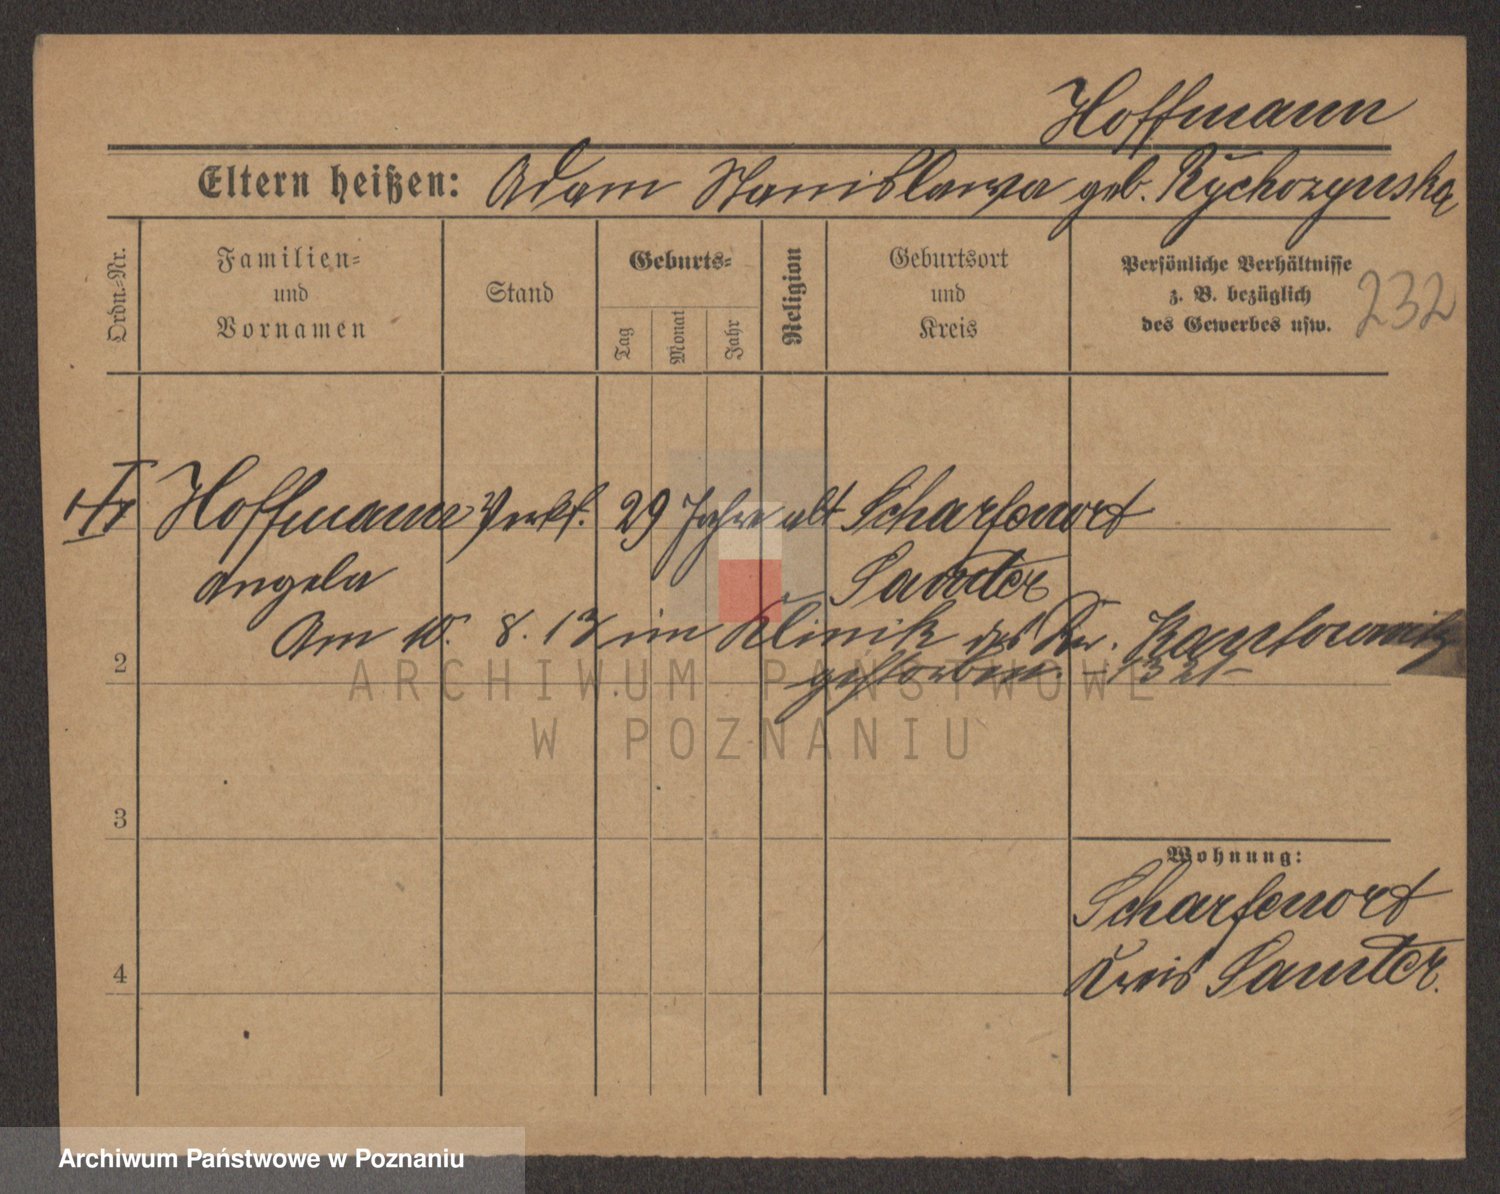 Hoffmann
Eltern heißen: Adam Stanislawa geb. Rychozynska
Ordn.-Nr.
Familien-
und
Vornamen
Stand
Geburts-
Tag
Monat
Jahr
Religion
Geburtsort
und
Kreis
Persönliche Verhältnisse
z. B. bezüglich
des Gewerbes usw.
232
Hoffmann Verkf. 29 Jahre alt Scharfenort
Angela Samter
Am 10. 8. 17 in Klinik des Dr.
2
gestorben.
3
4
Wohnung:
Scharfenort
Kreis Samter.
ARCHIWUM PAŃSTWOWE
W POZNANIU
Archiwum Państwowe w Poznaniu